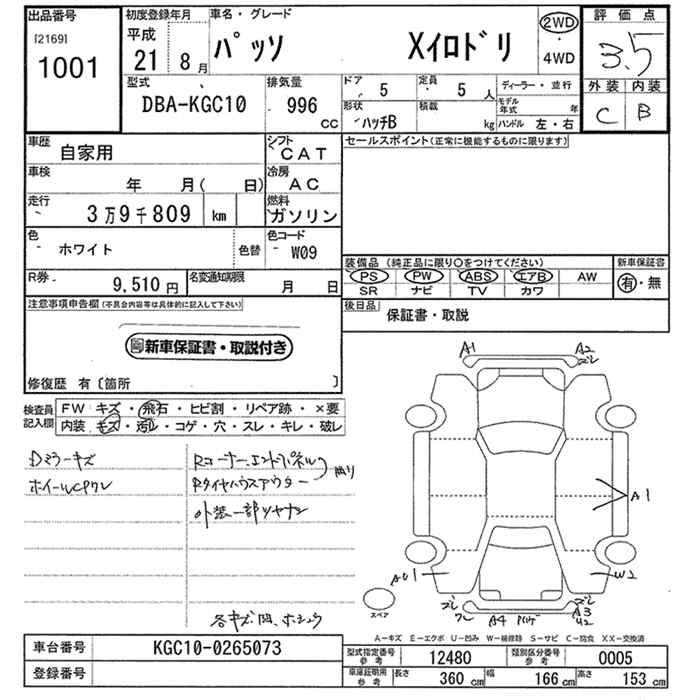 出品番号
[2169]
1001
初度登録年月
平成
21年 8月
車名・グレード
パッソ Xイロドリ
2WD
・
4WD
評価点
3.5
外装 内装
C B
型式
DBA-KGC10
排気量
996 CC
ドア 5
定員 5人
ディーラー・並行
形状 ハッチB
積載 kg
モデル年式 年
ハンドル 左・右
車歴 自家用
シフト CAT
セールスポイント(正常に機能するものに限ります)
車検 年 月( 日)
冷房 AC
走行 3万9千809 km
燃料 ガソリン
色 ホワイト 色替
色コード W09
装備品(純正品に限り○をつけてください)
新車保証書
PS PW ABS エアB AW
SR ナビ TV カワ
有・無
R券 9,510円
名変通知期限 月 日
後日品 保証書・取説
注意事項申告欄(不具合内容等は具体的に記入して下さい)
新車保証書・取説付き
修復歴 有〔箇所 〕
検査員記入欄
FW キズ・飛石・ヒビ割・リペア跡・×要
内装 キズ・汚レ・コゲ・穴・スレ・キレ・破レ
Dミラーキズ
ホイールCPクレ
Rコーナー、エンドパネル
Rタイヤハウスアウター
外装一部ツヤナシ
A1 A2
ズレ
A1
AU1 W2
ズレ ズレ
A4 A3
U2
スペア
A-キズ E-エクボ U-凹み W-補修跡 S-サビ C-腐食 XX-交換済
車台番号 KGC10-0265073
登録番号
型式指定番号 参考 12480
類別区分番号 参考 0005
車庫証明用 参考 長さ 360cm 幅 166cm 高さ 153cm